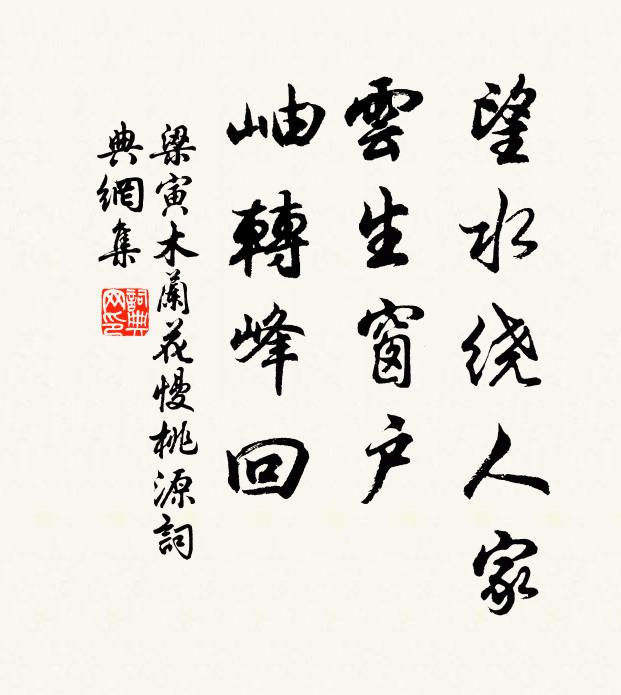 望水绕人家
雲生窗户
岫轉峰回
梁寅木蘭花慢桃源詞
典網集
詞典
网印